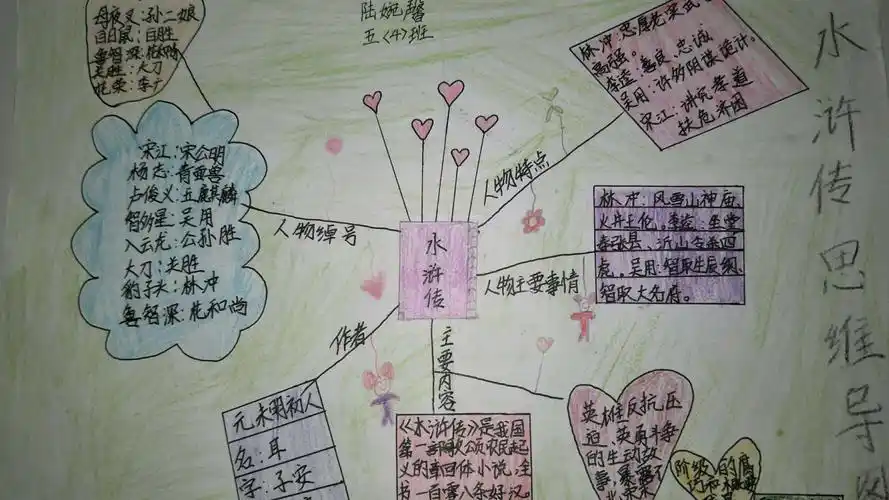 母夜叉：孙二娘
白日鼠：白胜
鲁智深：
关胜：大刀
花荣：李广
陆婉馨
五〈4〉班
林冲：忠厚老实武
高强。
李逵：善良、忠诚
吴用：许多阴谋诡计。
宋江：讲究孝道
扶危济困
水浒传思维导图
宋江：宋公明
杨志：青面兽
卢俊义：玉麒麟
智多星：吴用
入云龙：公孙胜
大刀：关胜
豹子头：林冲
鲁智深：花和尚
人物绰号
人物特点
水浒传
林冲：风雪山神庙
火并王伦。李逵：坐堂
寿张县、沂山令杀四
虎。吴用：智取生辰纲、
智取大名府。
人物主要事情
作者
主要内容
元末明初人
名：耳
字：子安
《水浒传》是我国
第一部歌颂农民起
义的章回体小说，全
书一百零八条好汉。
英雄反抗压
迫、英勇斗争
的生动故
事，暴露了
阶级
的腐